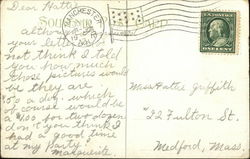 Dear Hatti
MANCHESTER
Altho
your letter
not think I told
you how much
those pictures would
be they are
50 a doz which
of course would be
$1.00 for two dozen
don't you think I
had a good time
at my Party
Marguerite
ONE CENT
Miss Hattie Griffith
22 Fulton St.
Medford, Mass.